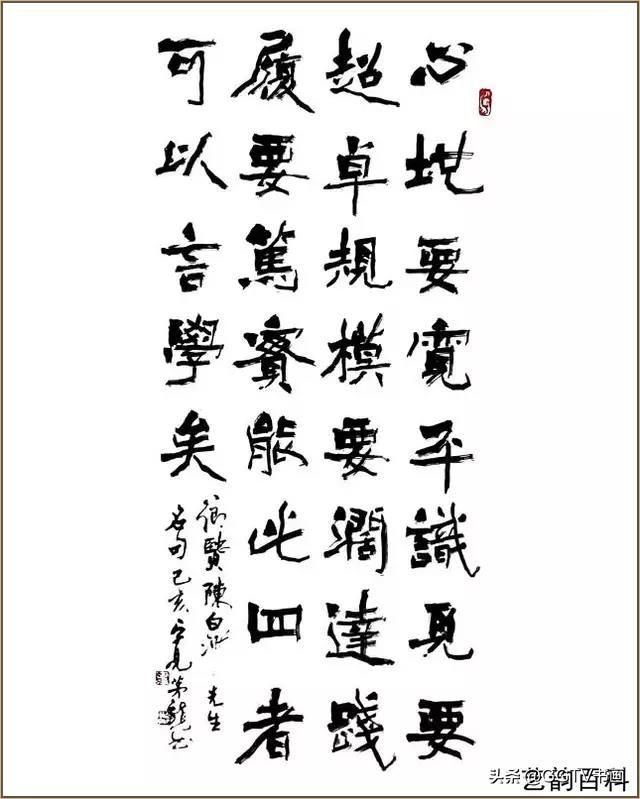 心地要寬平識見要
超卓規模要濶達踐
履要篤實能此四者
可以言學矣
鄉賢陳白沙先生
名句己亥
头条@GGTV书画
艺韵百科